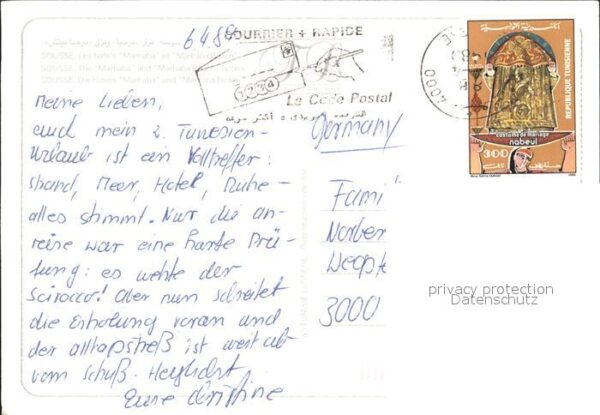 6.4.89
COURRIER + RAPIDE
1234
Le Code Postal
4000
SOUSSE. Les hôtels "Marhaba" et
SOUSSE. The "Marhaba" and
SOUSSE. Die Hotels "Marhaba" und
Meine Lieben,
auch mein 2. Tunesien-
urlaub ist ein Volltreffer:
Strand, Meer, Hotel, Ruhe -
alles stimmt. Nur die An-
reise war eine harte Prü-
fung: es wehte der
Scirocco! Aber nun schreitet
die Erholung voran und
der Alltagstreß ist weit ab
vom Schuß. Herzlichst
Eure Christine
Germany
Fami
Norber
3000
REPUBLIQUE TUNISIENNE
costume de mariage
nabeul
300
privacy protection
Datenschutz